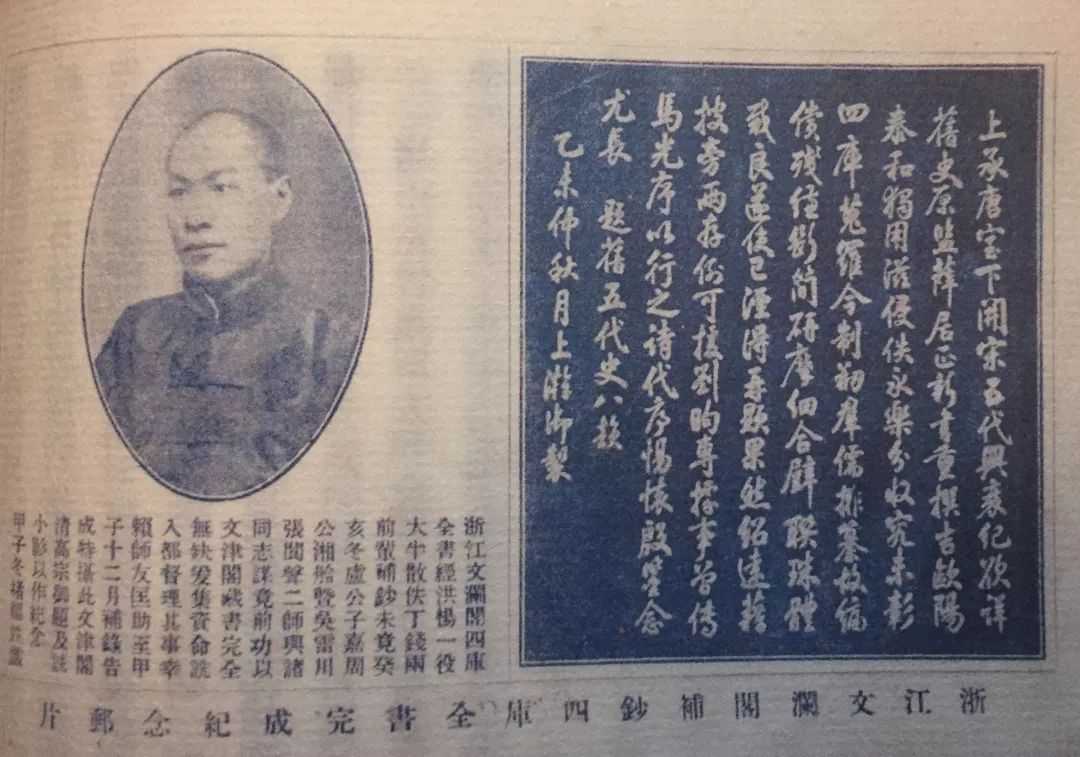 上承唐室下開宋五代興衰紀欲詳
舊史原監薛居正新書重撰吉歐陽
泰和獨用滋侵佚永樂分收究未彰
四庫蒐羅今制勑羣儒排纂故編
償殘經斷簡研摩細合璧聯珠體
裁良遂使已湮得再顯果然紹遠藉
搜旁兩存例可援劉昫專據事曾傳
馬光序以行之詩代序惕懷殷鑒念
尤長 題舊五代史八韻
乙未仲秋月上澣御製
浙江文瀾閣四庫
全書經洪楊一役
大半散佚丁錢兩
前輩補鈔未竟癸
亥冬盧公子嘉周
公湘舲暨吳雷川
張閬聲二師與諸
同志謀竟前功以
文津閣藏書完全
無缺爰集資命詵
入都督理其事幸
賴師友匡助至甲
子十二月補錄告
成特攝此文津閣
清高宗御題及詵
小影以作紀念
甲子冬堵福詵識
浙江文瀾閣補鈔四庫全書完成紀念郵片